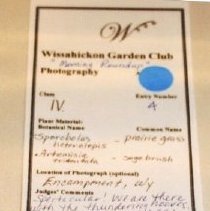 W
Wissahickon Garden Club
"Morning Roundup"
Photography
Class Entry Number
IV. 4
Plant Material:
Botanical Name Common Name
Sporobolus - prairie grass
heterolepis
Artemisia - sagebrush
tridentata
Location of Photograph (optional)
Encampment, Wy
Judges' Comments
Spectacular! We are there
with the thundering hooves.